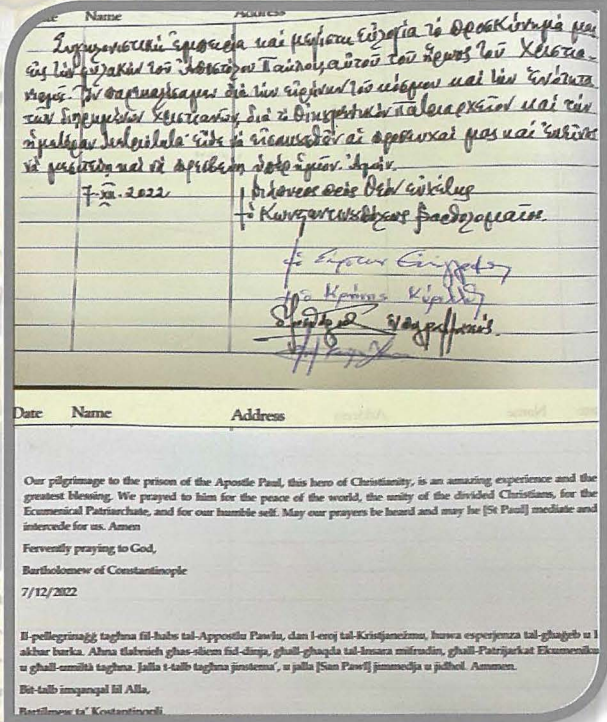 Name Address
Συγκλονιστική ἐμπειρία καί μεγίστη εὐλογία τό προσκύνημά μας
εἰς τήν φυλακήν τοῦ Ἀποστόλου Παύλου, αὐτοῦ τοῦ ἥρωος τοῦ Χριστια-
νισμοῦ. Τόν παρεκαλέσαμεν διά τήν εἰρήνην τοῦ κόσμου καί τήν ἑνότητα
τῶν διῃρημένων Χριστιανῶν, διά τό Οἰκουμενικόν Πατριαρχεῖον καί τήν
ἡμετέραν Μετριότητα. Εἴθε νά εἰσακουσθοῦν αἱ προσευχαί μας καί ἐκεῖνος
νά μεσιτεύῃ καί νά πρεσβεύῃ ὑπέρ ἡμῶν. Ἀμήν.
7-XII-2022 διάπυρος πρός Θεόν εὐχέτης
† ὁ Κωνσταντινουπόλεως Βαρθολομαῖος
† ὁ Κρήνης Κύριλλος
Date Name Address
Our pilgrimage to the prison of the Apostle Paul, this hero of Christianity, is an amazing experience and the
greatest blessing. We prayed to him for the peace of the world, the unity of the divided Christians, for the
Ecumenical Patriarchate, and for our humble self. May our prayers be heard and may he [St Paul] mediate and
intercede for us. Amen
Fervently praying to God,
Bartholomew of Constantinople
7/12/2022
Il-pellegrinaġġ tagħna fil-ħabs tal-Appostlu Pawlu, dan l-eroj tal-Kristjaneżmu, huwa esperjenza tal-għaġeb u l
akbar barka. Aħna tlabnieh għas-sliem fid-dinja, għall-għaqda tal-Insara mifrudin, għall-Patrijarkat Ekumeniku
u għall-umiltà tagħna. Jalla t-talb tagħna jinstema', u jalla [San Pawl] jimmedja u jidħol. Ammen.
Bit-talb imqanqal lil Alla,
Bartilmew ta' Kostantinopli